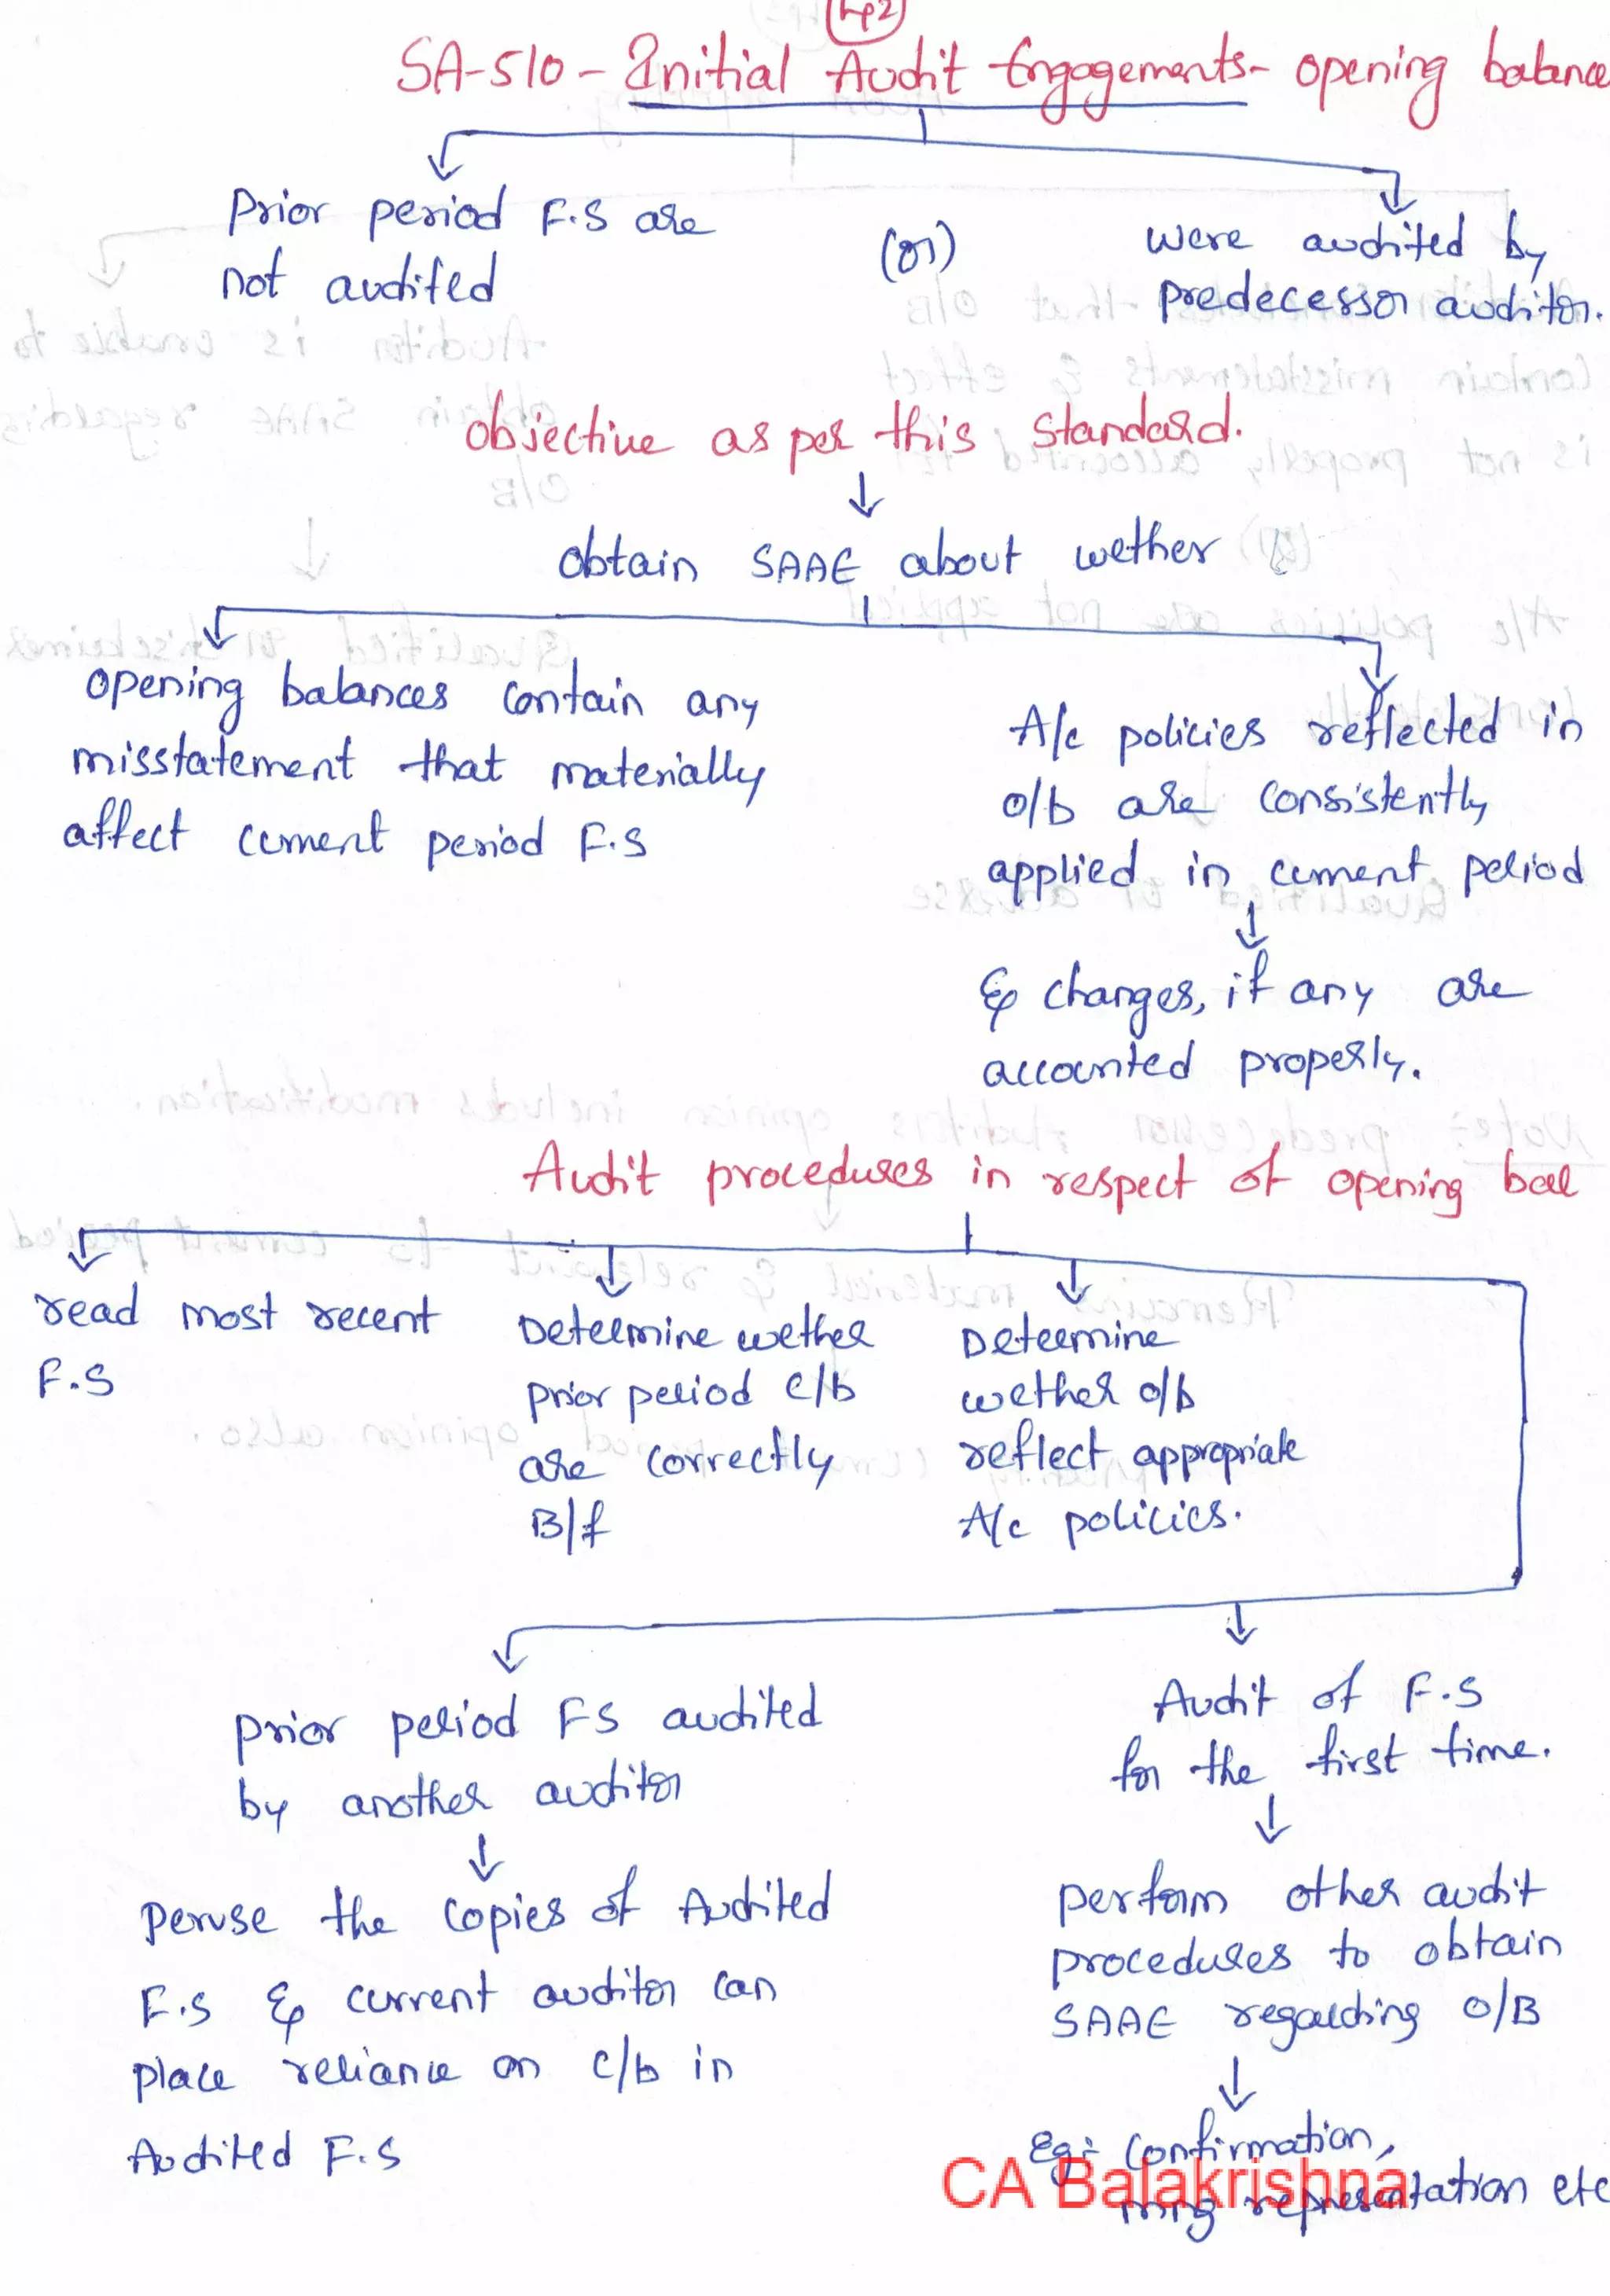 4p2
SA-510 - Initial Audit Engagements - opening balance
Prior period F.S are
not audited
(or)
were audited by
predecessor auditor.
objective as per this standard.
obtain SAAE about wether
opening balances contain any
misstatement that materially
affect current period F.S
A/c policies reflected in
o/b are consistently
applied in current period
& changes, if any are
accounted properly.
Audit procedures in respect of opening bal
read most recent
F.S
Determine wether
prior period c/b
are correctly
B/f
Determine
wether o/b
reflect appropriate
A/c policies.
prior period FS audited
by another auditor
peruse the copies of Audited
F.S & current auditor can
place reliance on c/b in
Audited F.S
Audit of F.S
for the first time.
perform other audit
procedures to obtain
SAAE regarding O/B
Eg:- Confirmation,
mng representation etc
CA Balakrishna